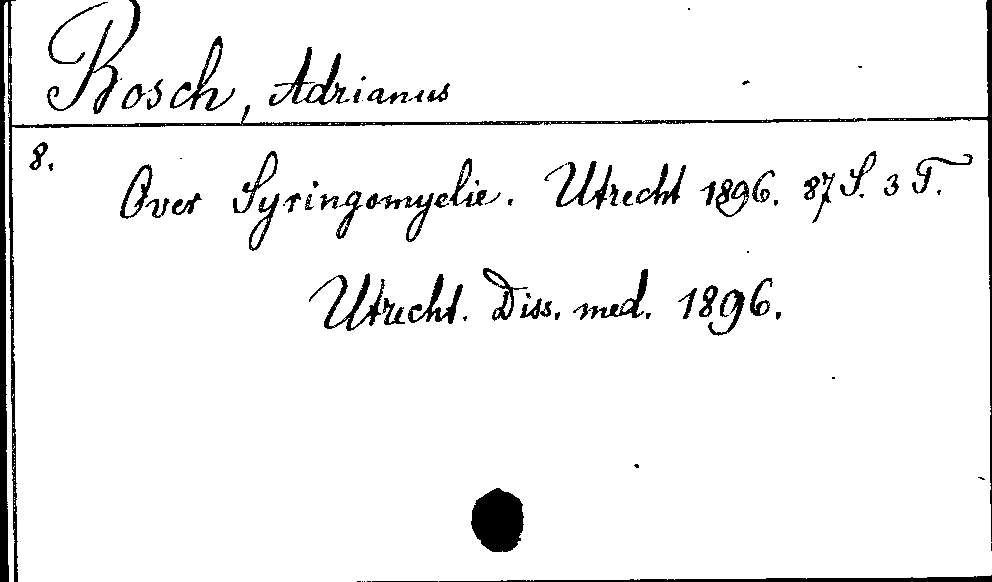 Bosch, Adrianus
8.
Over Syringomyelie. Utrecht 1896. 87 S. 3 T.
Utrecht. Diss. med. 1896.